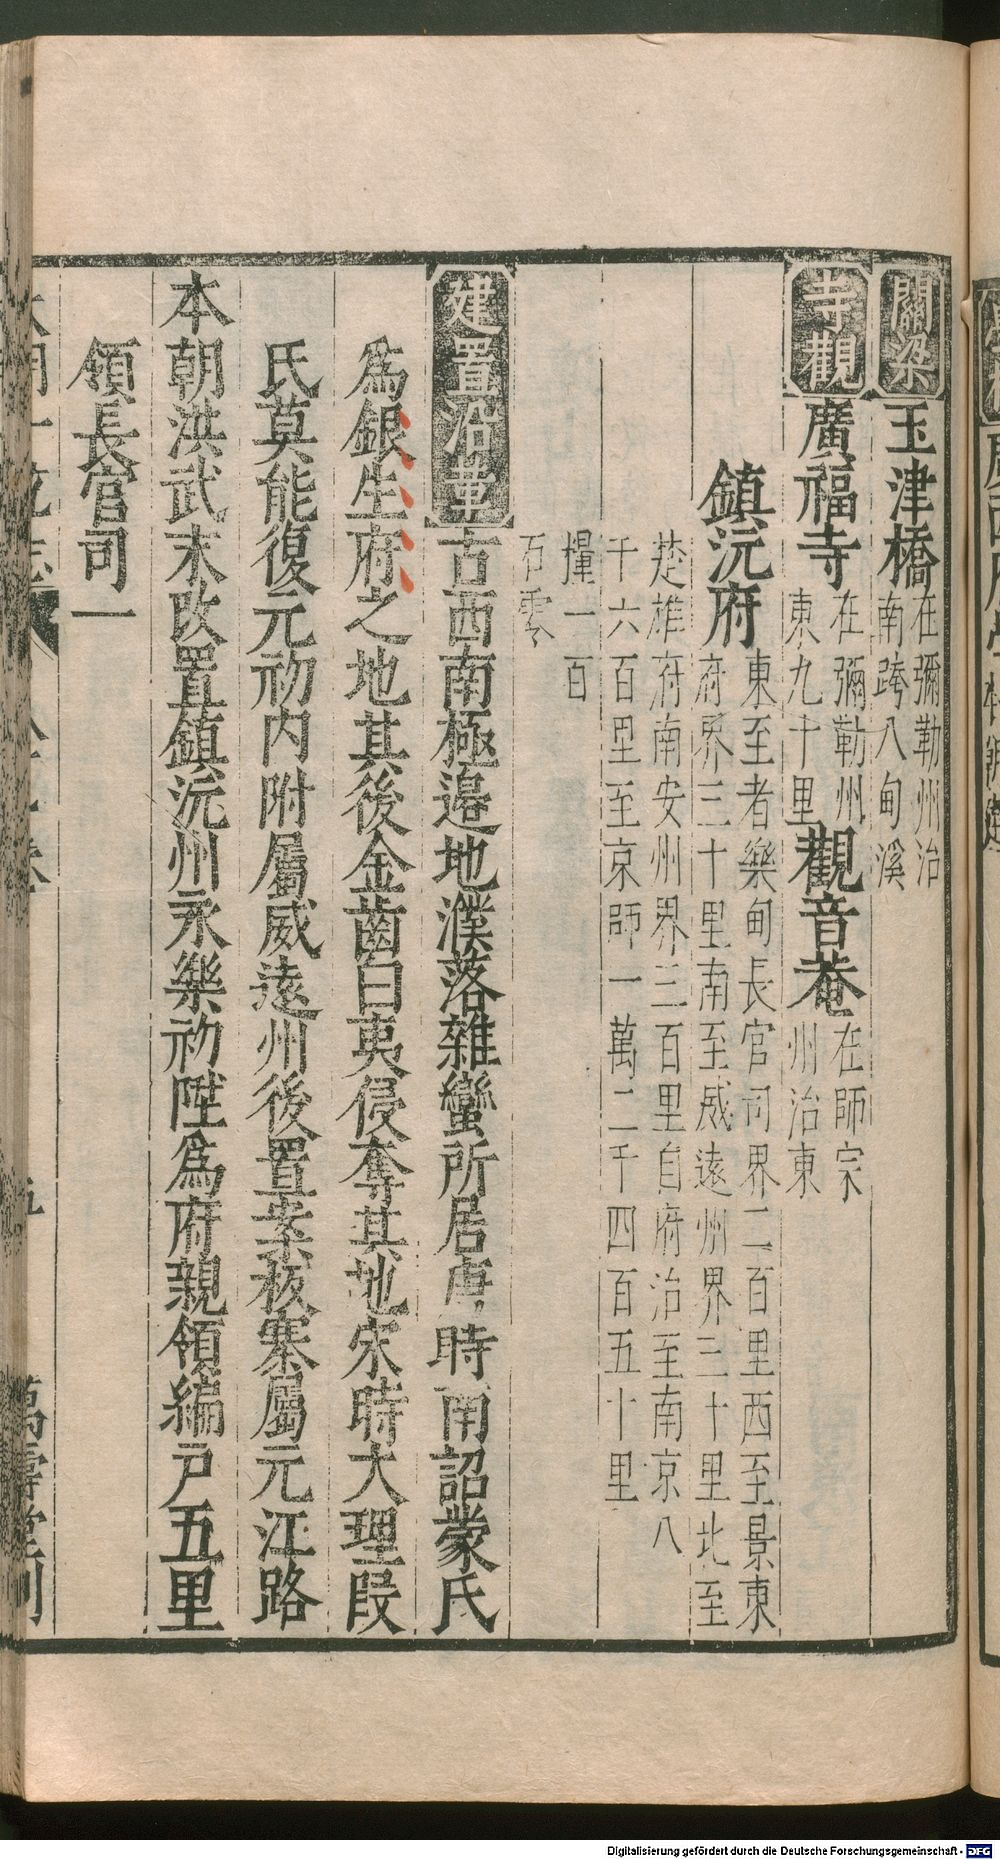 關梁玉津橋在彌勒州治南跨八甸溪
寺觀廣福寺在彌勒州東九十里觀音菴在師宗州治東
鎮沅府東至者樂甸長官司界二百里西至景東府界三十里南至威遠州界三十里北至
楚雄府南安州界三百里自府治至南京八千六百里至京師一萬二千四百五十里
糧一百石零
建置沿革古西南極邊地濮落雜蠻所居唐時南詔蒙氏
爲銀生府之地其後金齒白夷侵奪其地宋時大理段
氏莫能復元初内附屬威遠州後置案板寨屬元江路
本朝洪武末改置鎮沅州永樂初陞爲府親領編戸五里
領長官司一
萬壽堂刊
Digitalisierung gefördert durch die Deutsche Forschungsgemeinschaft - DFG